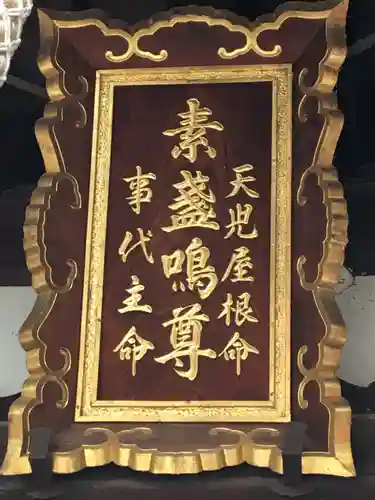 天児屋根命
素盞鳴尊
事代主命